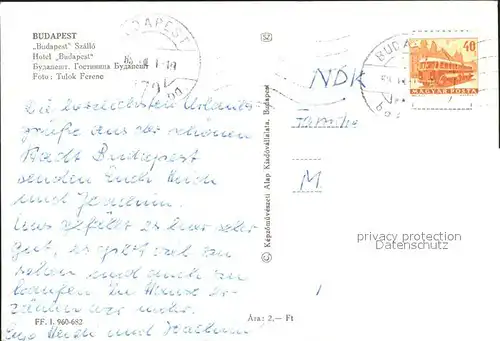 BUDAPEST
„Budapest" Szálló
Hotel „Budapest"
Будапешт. Гостиница Будапешт
Foto: Tulok Ferenc
BUDAPEST
BUDA
40
MAGYAR POSTA
NDK
Die besonderen Urlaubs-
grüße aus der schönen
Stadt Budapest
senden Euch Heidi
und Joachim.
Uns gefällt es hier sehr
gut, es gibt viel zu
sehen und auch zu
kaufen. Zu Hause er-
zählen wir mehr.
Eure Heidi und Joachim
Familie
M
© Képzőművészeti Alap Kiadóvállalata, Budapest
privacy protection
Datenschutz
FF. I. 960-682
Ára: 2,— Ft